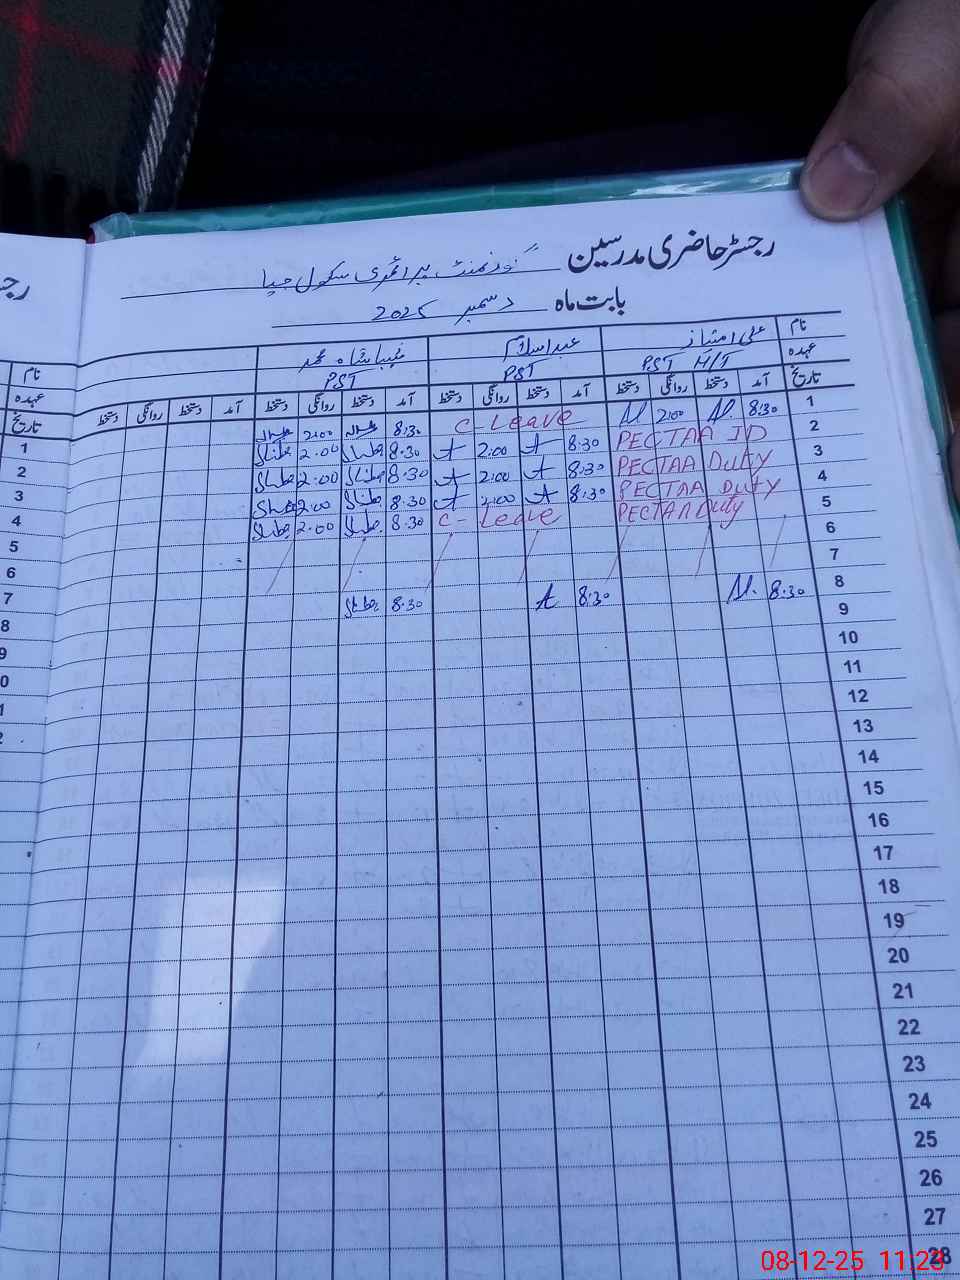 رجسٹر حاضری مدرسین گورنمنٹ پرائمری سکول
بابت ماہ دسمبر 2025
نام علی امتیاز عبدالسلام
عہدہ PST H/T PST PST
تاریخ آمد دستخط روانگی دستخط آمد دستخط روانگی دستخط آمد دستخط روانگی دستخط آمد دستخط روانگی دستخط
1 8:30 2:00 C-Leave 8:30 2:00
2 PECTAA 8:30 2:00 8:30 2:00
3 PECTAA Duty 8:30 2:00 8:30 2:00
4 PECTAA Duty 8:30 2:00 8:30 2:00
5 PECTAA Duty C-Leave 8:30 2:00
6
7
8 8:30 8:30 8:30
9
10
11
12
13
14
15
16
17
18
19
20
21
22
23
24
25
26
27
28
رجـ
نام
عہدہ
تاریخ
1
2
3
4
5
6
7
8
9
0
1
2
08-12-25 11:23